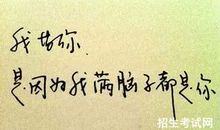 我苦恼
是因为我满脑子都是你
招生考试网